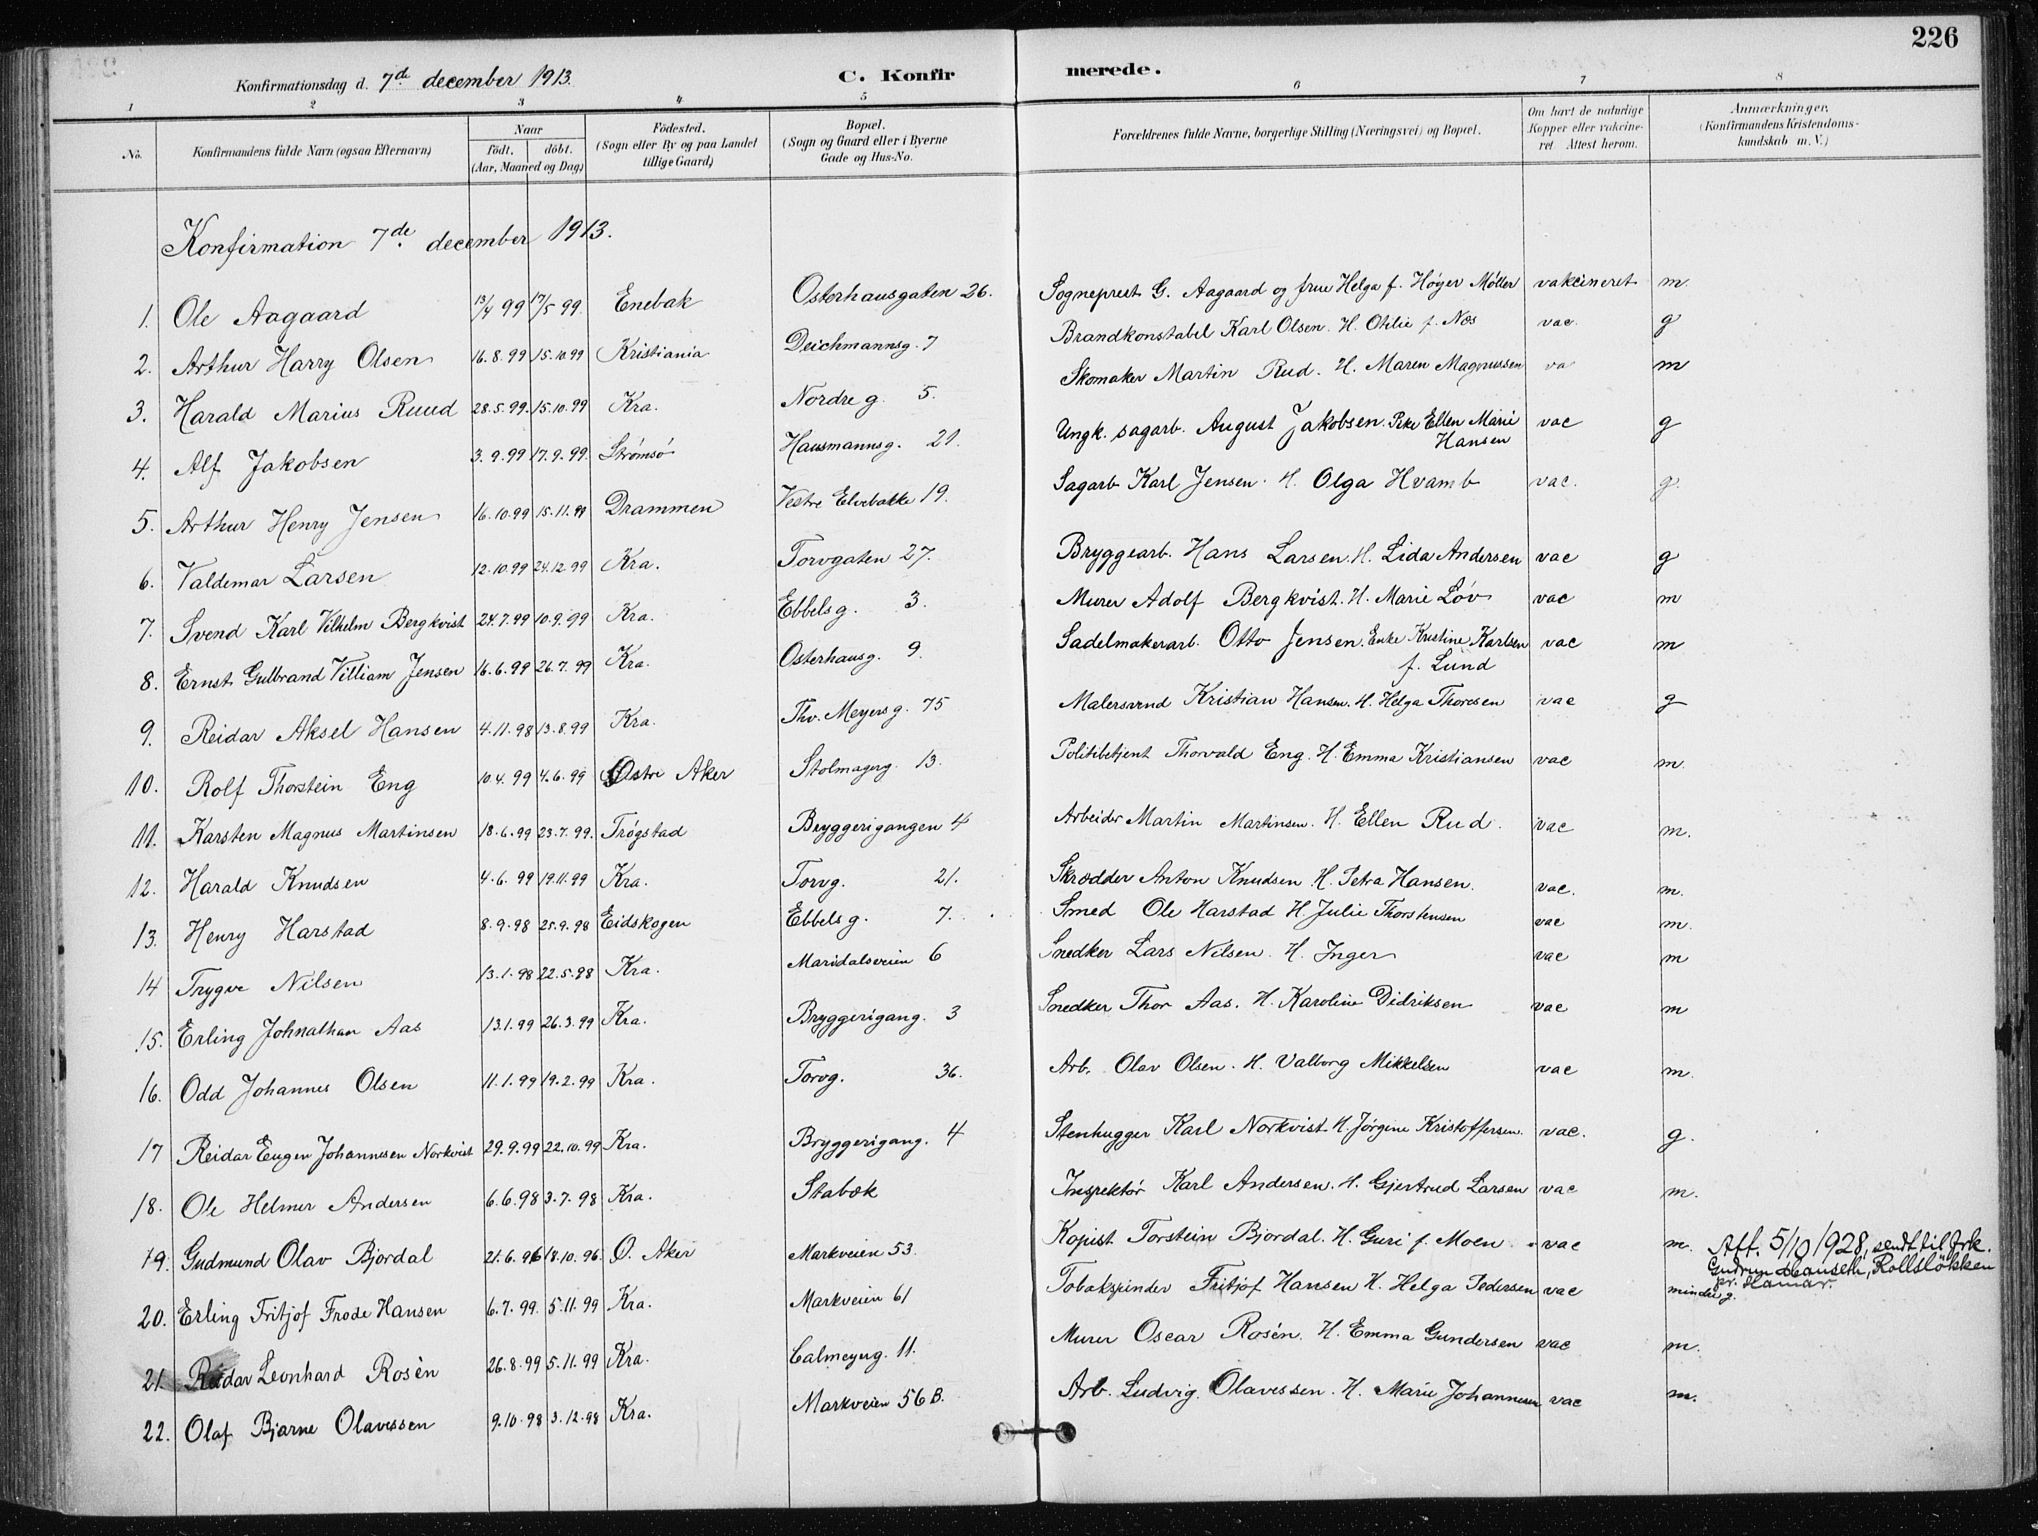 226
Konfirmationsdag d. 7de december 1913.
C. Konfirmerede.
1 2 3 4 5 6 7 8
No.
Konfirmandens fulde Navn (ogsaa Efternavn)
Naar
födt. döbt.
(Aar, Maaned og Dag)
Födested.
(Sogn eller By og paa Landet
tillige Gaard)
Bopæl.
(Sogn og Gaard eller i Byerne
Gade og Hus-No.
Forældrenes fulde Navne, borgerlige Stilling (Næringsvei) og Bopæl.
Om havt de naturlige
Kopper eller vakcine-
ret Attest herom.
Anmærkninger.
(Konfirmandens Kristendoms-
kundskab m. V.)
Konfirmation 7de december 1913.
1. Ole Aagaard 13/4 99 17/5 99 Enebak Osterhausgaten 26. Sogneprest G. Aagaard og frue Helga f. Høyer Møller vakcineret m.
2. Arthur Harry Olsen 16.8.99 15.10.99 Kristiania Deichmannsg. 7 Brandkonstabel Karl Olsen. H. Otilie f. Næs vac. g
3. Harald Marius Ruud 28.5.99. 15.10.99 Kra. Nordre g. 5. Skomaker Martin Rud. H. Maren Magnussen va m
4. Alf Jakobsen 3.9.99 17.9.99. Strømsø Hausmannsg. 21. Ungk. sagarb. August Jakobsen. Pike Ellen Marie Hansen vac g
5. Arthur Henry Jensen 16.10.99 15.11.99 Drammen Vestre Elvebakke 19. Sagarb Karl Jensen. H. Olga Hvamb vac. g.
6. Valdemar Larsen 12.10.99 24.12.99 Kra. Torvgaten 27. Bryggearb. Hans Larsen. H. Lida Andersen vac g
7. Svend Karl Vilhelm Bergkvist 24.7.99 10.9.99 Kra. Ebbels g. 3. Murer Adolf Bergkvist. H. Marie Löv vac m
8. Ernst Gulbrand Villiam Jensen 16.6.99 26.7.99 Kra. Osterhausg. 9. Sadelmakerarb. Otto Jensen. Enke Kristine Karlsen f. Lund vac m
9. Reidar Aksel Hansen 4.11.98 13.8.99 Kra. Thv. Meyers g. 75 Malersvend Kristian Hansen. H. Helga Thoresen vac g
10. Rolf Thorstein Eng 10.4.99 4.6.99 Østre Aker Stolmagerg. 13. Politibetjent Thorvald Eng. H. Emma Kristiansen vac m.
11. Karsten Magnus Martinsen 18.6.99 23.7.99. Trögstad Bryggerigangen 4 Arbeider Martin Martinsen. H. Ellen Rud. vac m.
12. Harald Knudsen 4.6.99 19.11.99 Kra. Torvg. 21. Skrædder Anton Knudsen H. Petra Hansen. vac. m.
13. Henry Harstad 8.9.98 25.9.98 Eidskogen Ebbels g. 7. Smed Ole Harstad H. Julie Thorstensen vac m.
14 Trygve Nilsen 13.1.98 22.5.98 Kra. Maridalsveien 6 Snedker Lars Nilsen. H. Inger vac m
15. Erling Johnathan Aas 13.1.99 26.3.99 Kra. Bryggerigang. 3 Snedker Thor Aas. H. Karoline Didriksen vac m
16. Odd Johannes Olsen 11.1.99 19.2.99 Kra. Torvg. 36. Arb. Olav Olsen. H. Valborg Mikkelsen vac m.
17 Reidar Eugen Johannesen Norkvist 29.9.99 22.10.99 Kra. Bryggerigang. 4 Stenhugger Karl Norkvist. H. Jørgine Kristoffersen. vac. g.
18. Ole Helmer Andersen 6.6.98 3.7.98 Kra. Stabæk Inspektør Karl Andersen. H. Gjertrud Larsen vac m.
19. Gudmund Olav Bjordal 21.6.96 18.10.96. Ø. Aker Markveien 53. Kopist Torstein Bjordal. H. Guri f. Moen vac m. Att. 5/10 1928, sendt til frk.
Gudrun Hauseth, Rollsløkken
pr. Hamar.
20. Erling Fritjof Frode Hansen 6.7.99. 5.11.99 Kra. Markveien 61 Tobakspinder Fritjof Hansen H. Helga Pedersen vac mindre g.
21. Reidar Leonhard Rosén 26.8.99 5.11.99 Kra. Calmeyerg. 11. Murer Oscar Rosén. H. Emma Gundersen vac m.
22. Olaf Bjarne Olavessen 9.10.98 3.12.98 Kra. Markveien 56 B. Arb. Ludvig Olavessen. H. Marie Johannesen vac m.